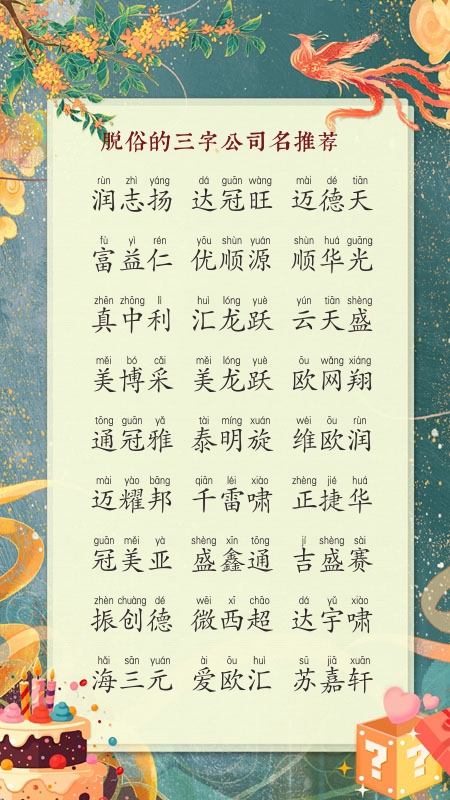 脱俗的三字公司名推荐
rùn zhì yáng dá guān wàng mài dé tiān
润志扬 达冠旺 迈德天
fù yì rén yōu shùn yuán shùn huá guāng
富益仁 优顺源 顺华光
zhēn zhōng lì huì lóng yuè yún tiān shèng
真中利 汇龙跃 云天盛
měi bó cǎi měi lóng yuè ōu wǎng xiáng
美博采 美龙跃 欧网翔
tōng guān yǎ tài míng xuán wéi ōu rùn
通冠雅 泰明旋 维欧润
mài yào bāng qiān léi xiào zhèng jié huá
迈耀邦 千雷啸 正捷华
guān měi yà shèng xīn tōng jí shèng sài
冠美亚 盛鑫通 吉盛赛
zhèn chuàng dé wēi xī chāo dá yǔ xiào
振创德 微西超 达宇啸
hǎi sān yuán ài ōu huì sū jiā xuān
海三元 爱欧汇 苏嘉轩
? ?